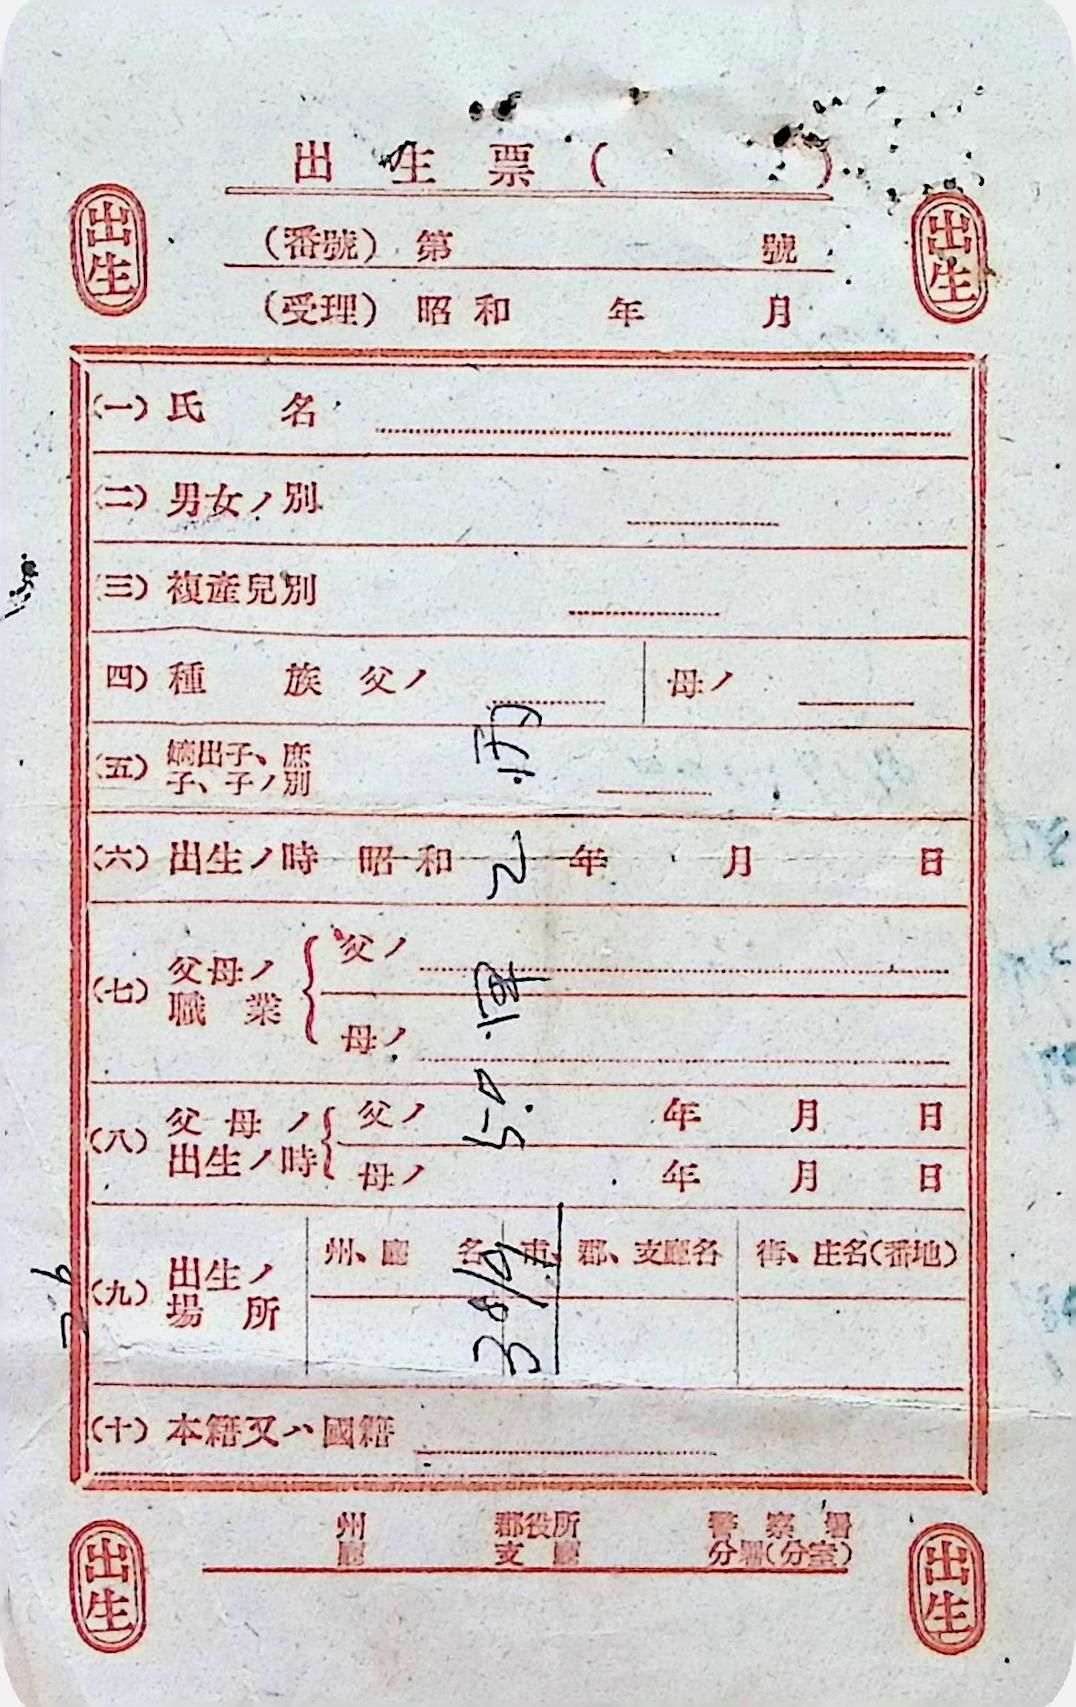 出生票（　　　）
出生
出生
（番號）第　　　號
（受理）昭和　　年　　月
（一）氏　名
（二）男女ノ別
（三）複產兒別
（四）種　族　父ノ　　　母ノ
（五）嫡出子、庶子、子ノ別
（六）出生ノ時　昭和　　年　　月　　日
（七）父母ノ職業　父ノ
母ノ
（八）父母ノ出生ノ時　父ノ　　年　　月　　日
母ノ　　年　　月　　日
（九）出生ノ場所　州、廳名　市、郡、支廳名　街、庄名（番地）
（十）本籍又ハ國籍
州　郡役所　警察署
廳　支廳　分署（分室）
出生
出生